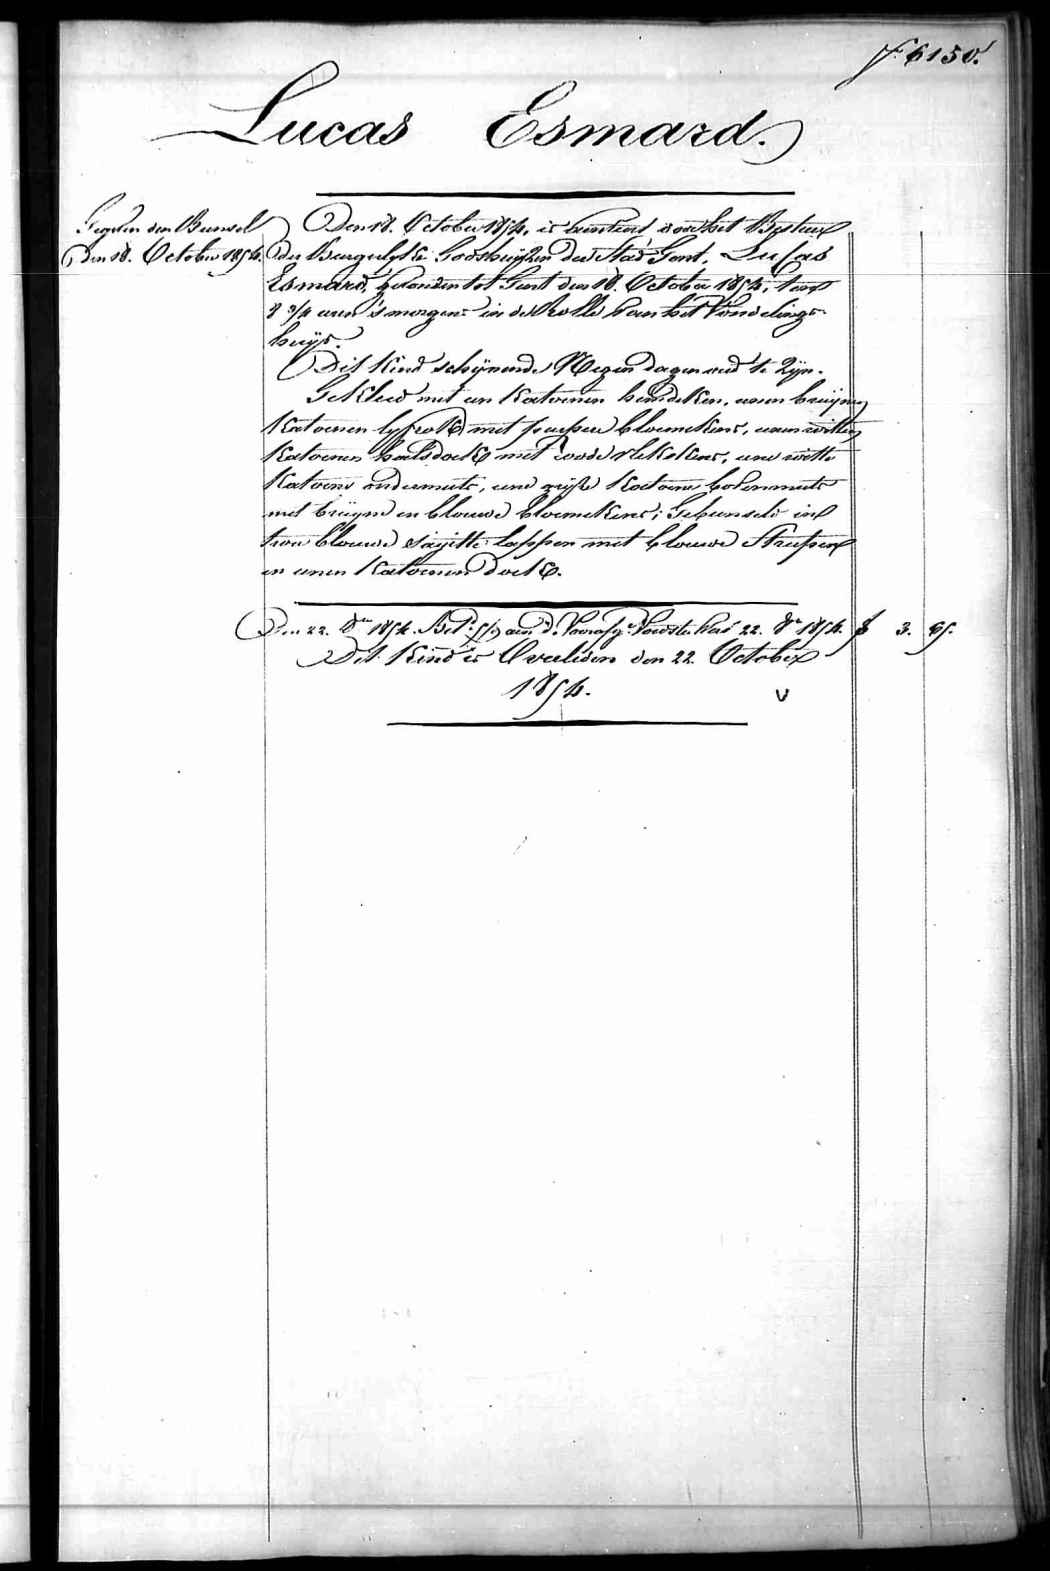 f. 6150.
Lucas Esmard.
Gegeven den Bunsel
den 18. October 1854.
Den 18. October 1854, is besteed door het Bestuer
der Burgerlyke Godshuyzen der Stad Gent, Lucas
Esmard, gevonden tot Gent den 18. October 1854, ten
8 3/4 uren 's morgens in de Rolle van het Vondelings-
huys.
Dit Kind schynende Negen dagen oud te Zyn.
Gekleed met een Katoenen hemdeken, eenen bruynen
Katoenen lyfrok met purpere bloemekens, eenen witten
Katoenen halsdoek met roode plekskens, eene witte
Katoene ondermuts, eene gryze Katoene bovenmuts
met bruyne en blauwe bloemekens; Gebunseld in
twee blauwe sayette lappen met blauwe Strepen
en eenen Katoenen doek.
Den 22. 8er 1854. Bet. aen d. Voedster 22. 8er 1854. f 3. 85.
Dit Kind is Overleden den 22 October
1854.
v